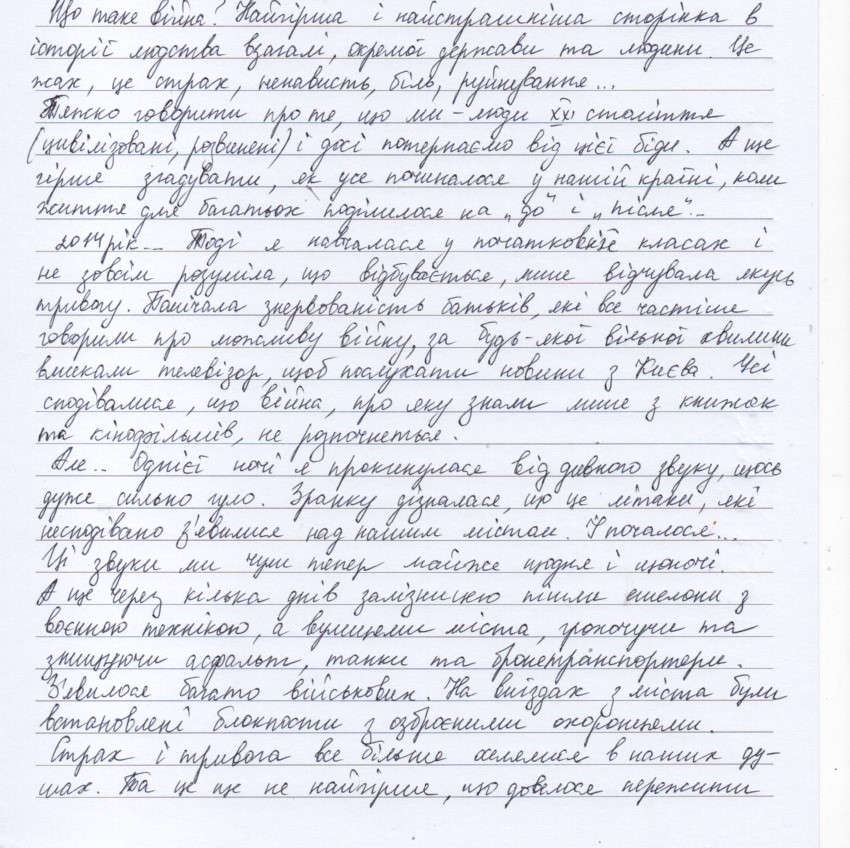 Що таке війна? Найгірша і найстрашніша сторінка в
історії людства взагалі, окремої держави та людини. Це
жах, це страх, ненависть, біль, руйнування...
Тяжко говорити про те, що ми – люди XXI століття
(цивілізовані, розвинені) і досі потерпаємо від цієї біди. А ще
гірше згадувати, як усе починалося у нашій країні, коли
життя для багатьох поділилося на „до" і „після"...
2014 рік... Тоді я навчалася у початкових класах і
не зовсім розуміла, що відбувається, лише відчувала якусь
тривогу. Помічала знервованість батьків, які все частіше
говорили про можливу війну, за будь-якої вільної хвилини
вмикали телевізор, щоб послухати новини з Києва. Усі
сподівалися, що війна, про яку знали лише з книжок
та кінофільмів, не розпочнеться.
Але... Однієї ночі я прокинулася від дивного звуку, щось
дуже сильно гуло. Зранку дізналася, що це літаки, які
несподівано з'явилися над нашим містом. І почалося...
Ці звуки ми чули тепер майже щодня і щоночі.
А ще через кілька днів залізницею пішли ешелони з
воєнною технікою, а вулицями міста, грохочучи та
знищуючи асфальт, танки та бронетранспортери.
З'явилося багато військових. На виїздах з міста були
встановлені блокпости з озброєними охоронцями.
Страх і тривога все більше селилися в наших ду-
шах. Та це ще не найгірше, що довелося пережити